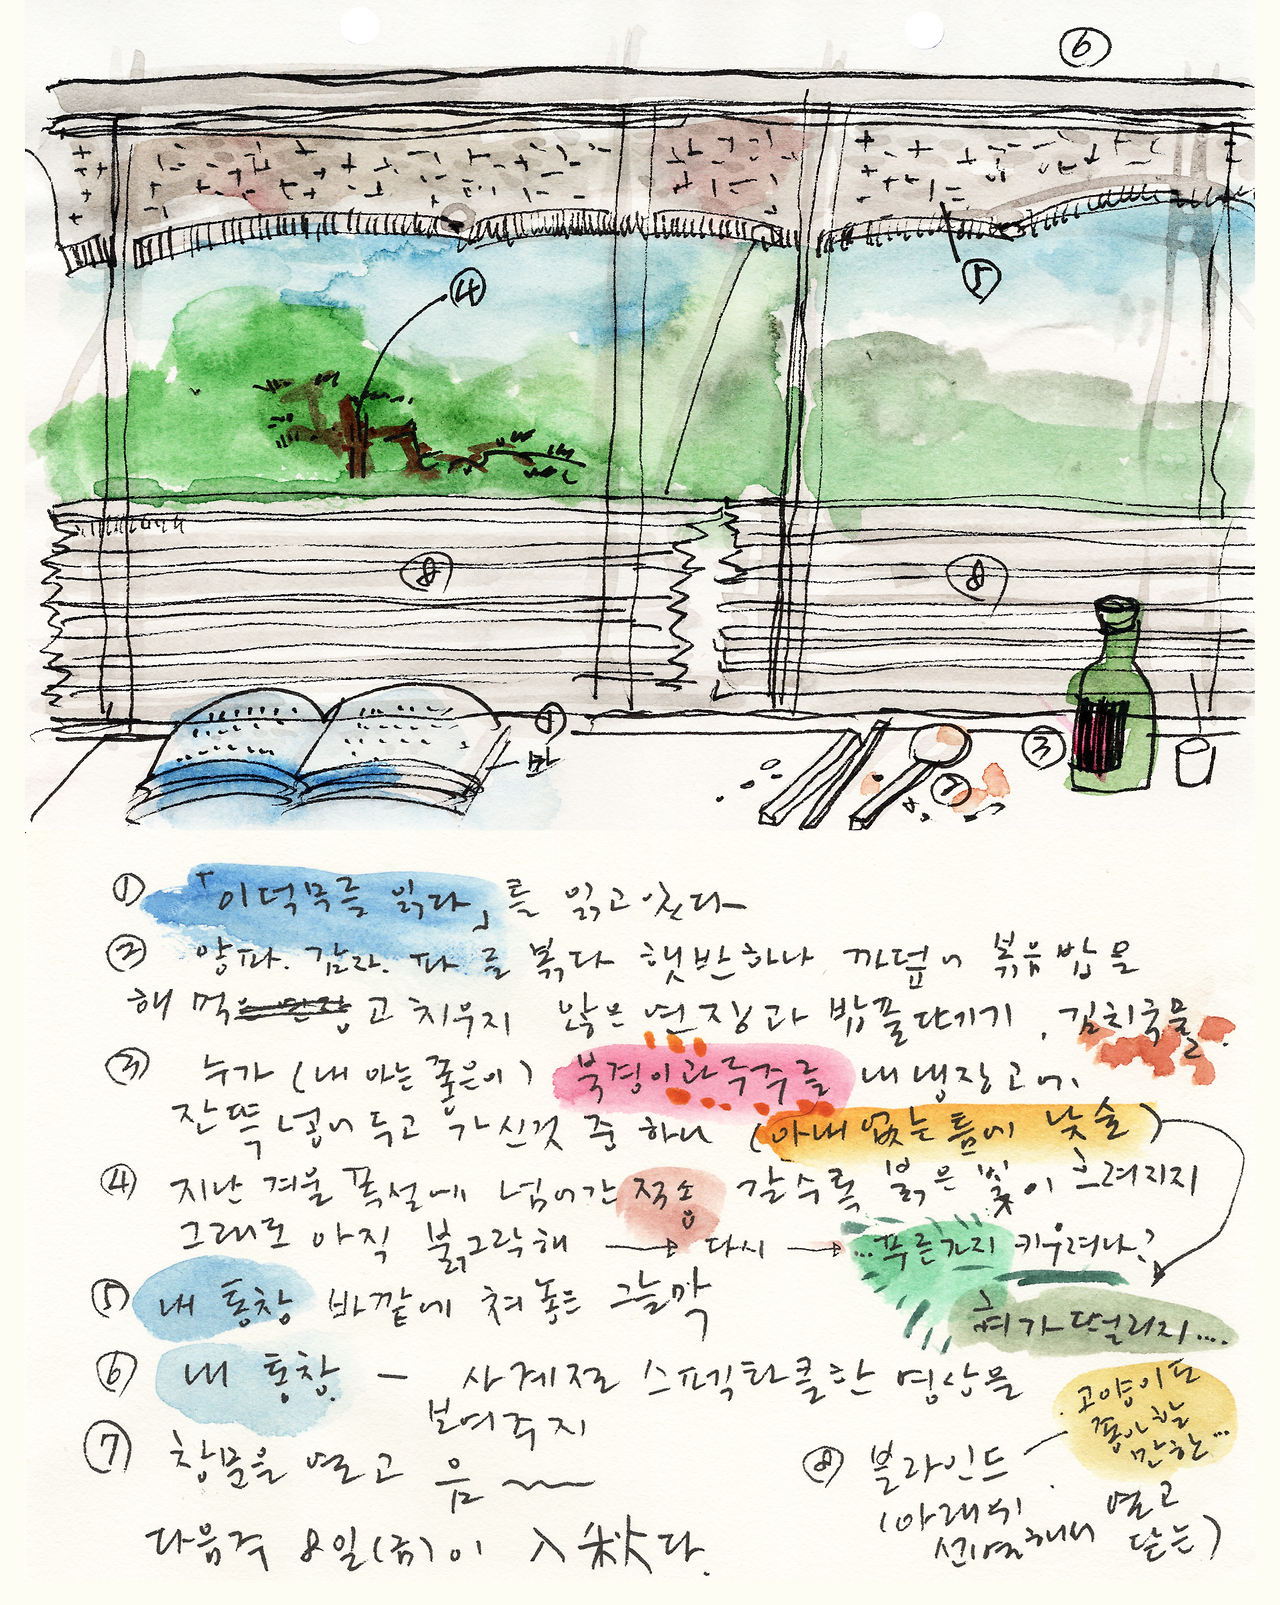 ⑥
④
⑤
⑧
⑧
①
③
⑦
① 「이덕무를 읽다」를 읽고 있다
② 양파. 감자. 파를 볶다 햇반하나 까넣어 볶음밥을
해 먹고 치우지 않은 면장과 밥풀 단기기, 김치국물.
③ 누가 (내 아는 좋은이) 북경이과두주를 내 냉장고에
잔뜩 넣어두고 가신것 중 하나 (아내 없는 틈에 낮술)
④ 지난 겨울 폭설에 넘어간 적송 갈수록 붉은 빛이 흐려지지
그래도 아직 붉그락해 → 다시 → ...푸른가지 키우려나?
혀가 떨리지....
⑤ 내 통창 바깥에 쳐놓은 그늘막
⑥ 내 통창 - 사계절 스펙타클한 영상을
보여주지
⑦ 창문을 열고 음~
⑧ 블라인드
고양이도
좋아할
만한...
(아래위 열고
선택해서 닫는)
다음주 8일(금)이 入秋다.